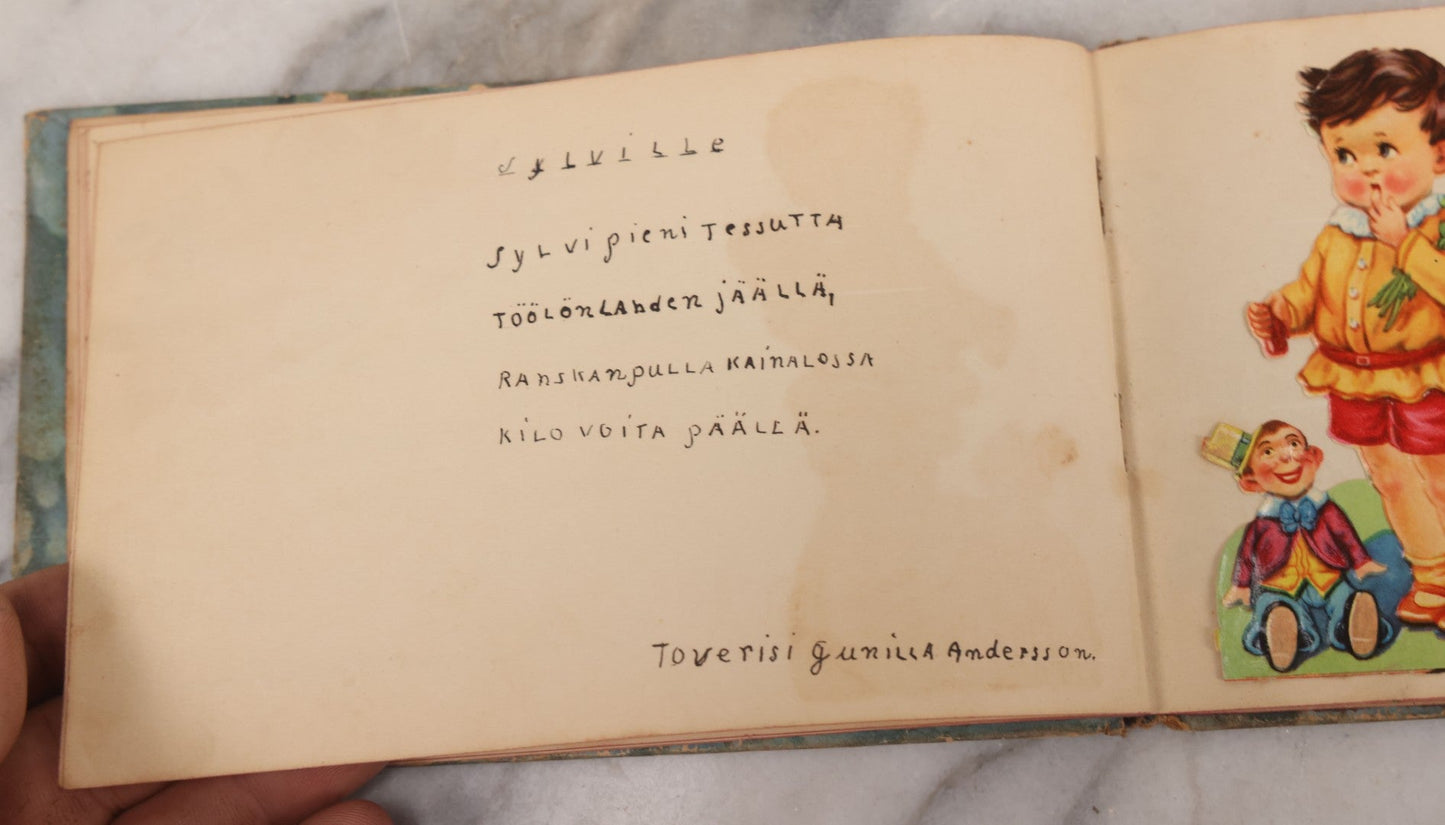 Sylville
Sylvi pieni Tessutta
Töölönlahden jäällä,
Ranskanpulla kainalossa
kilo voita päällä.
Toverisi Gunilla Andersson.